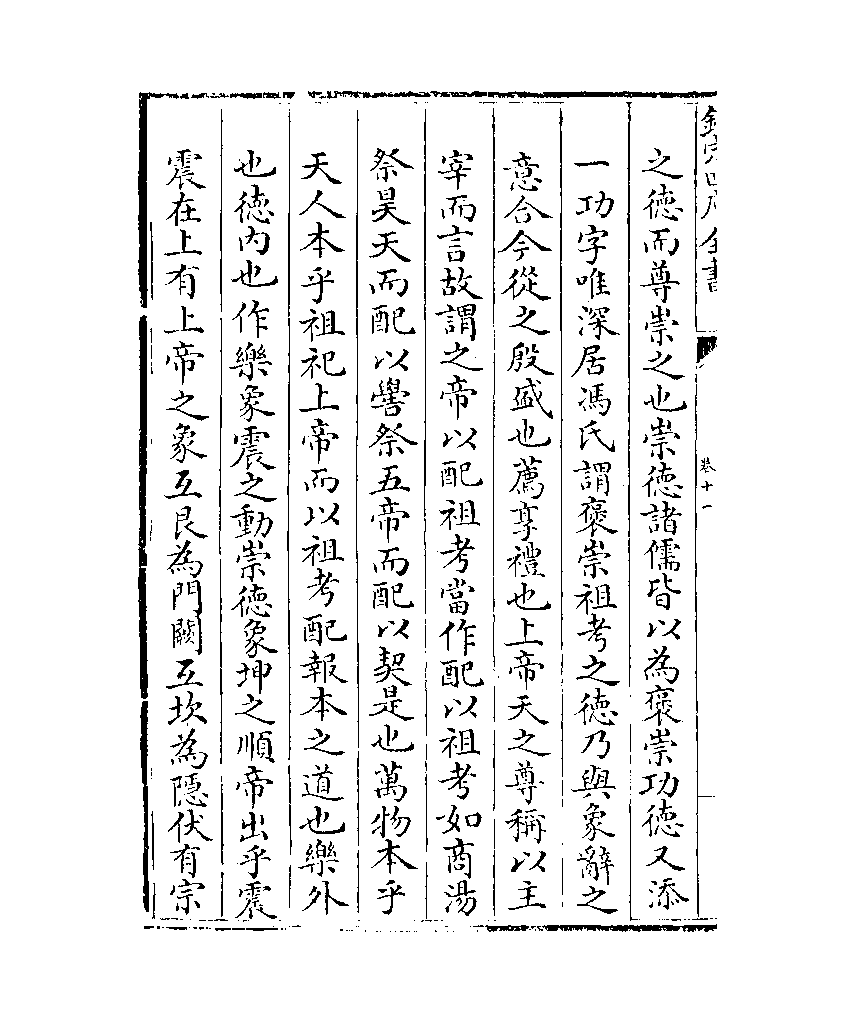 欽定四庫全書
卷十一
之德而尊崇之也崇德諸儒皆以為褒崇功德又添
一功字唯深居馮氏謂褒崇祖考之德乃與象辭之
意合今從之殷盛也薦享禮也上帝天之尊稱以主
宰而言故謂之帝以配祖考當作配以祖考如商湯
祭昊天而配以嚳祭五帝而配以契是也萬物本乎
天人本乎祖祀上帝而以祖考配報本之道也樂外
也德内也作樂象震之動崇德象坤之順帝出乎震
震在上有上帝之象互艮為門闕互坎為隠伏有宗